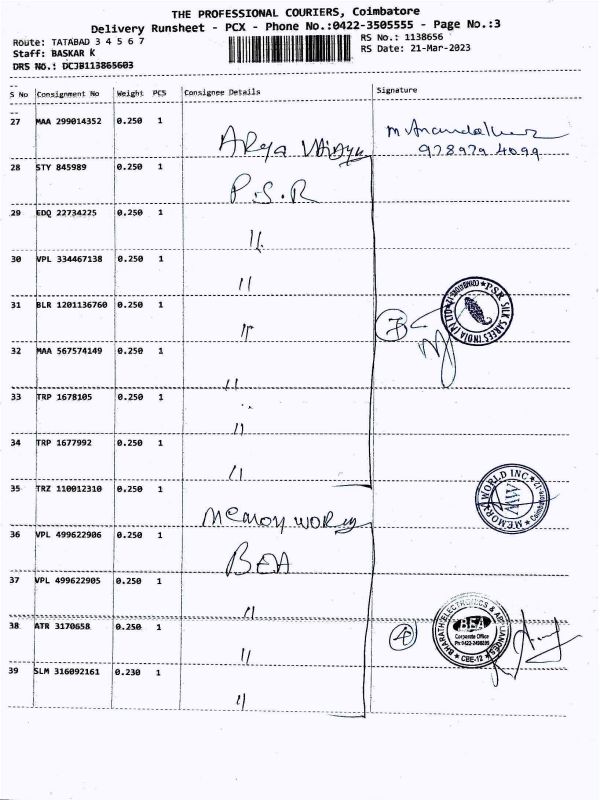 THE PROFESSIONAL COURIERS, Coimbatore
Delivery Runsheet - PCX - Phone No.:0422-3505555 - Page No.:3
Route: TATABAD 3 4 5 6 7
RS No.: 1138656
Staff: BASKAR K
RS Date: 21-Mar-2023
DRS No.: DCJB113865603
S No Consignment No Weight PCS Consignee Details Signature
27 MAA 299014352 0.250 1
Arya Vaidya
978979 4099
28 STY 845989 0.250 1
P.S.R
29 EDQ 22734225 0.250 1
"
30 VPL 334467138 0.250 1
"
31 BLR 1201136760 0.250 1
"
7
PSR SILK SAREES INDIA (P) LTD COIMBATORE-12
32 MAA 567574149 0.250 1
"
33 TRP 1678105 0.250 1
"
34 TRP 1677992 0.250 1
"
35 TRZ 110012310 0.250 1
Memory World
MEMORY WORLD INC
MW
Coimbatore-12
36 VPL 499622906 0.250 1
BEA
37 VPL 499622905 0.250 1
"
38 ATR 3170658 0.250 1
"
4
BHARATH ELECTRONICS & APPLIANCES
BEA
Corporate Office
CBE-12
39 SLM 316092161 0.230 1
"